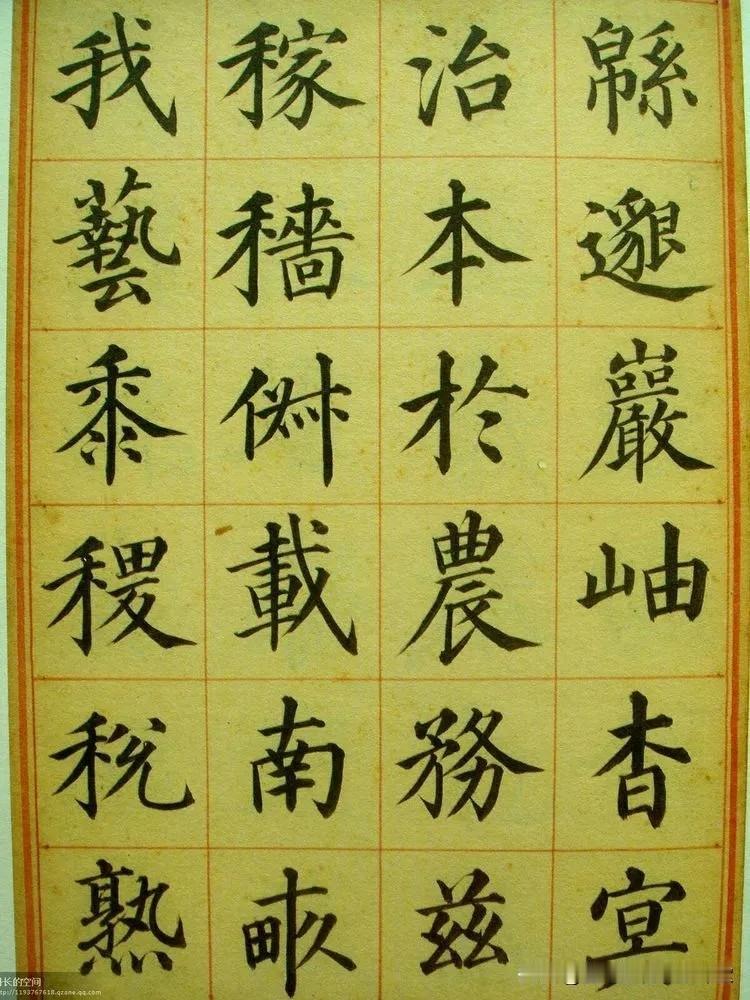 緜邈巖岫杳冥
治本於農務茲
稼穡俶載南畝
我藝黍稷稅熟
长的空间
http://1193767618.qzone.qq.com